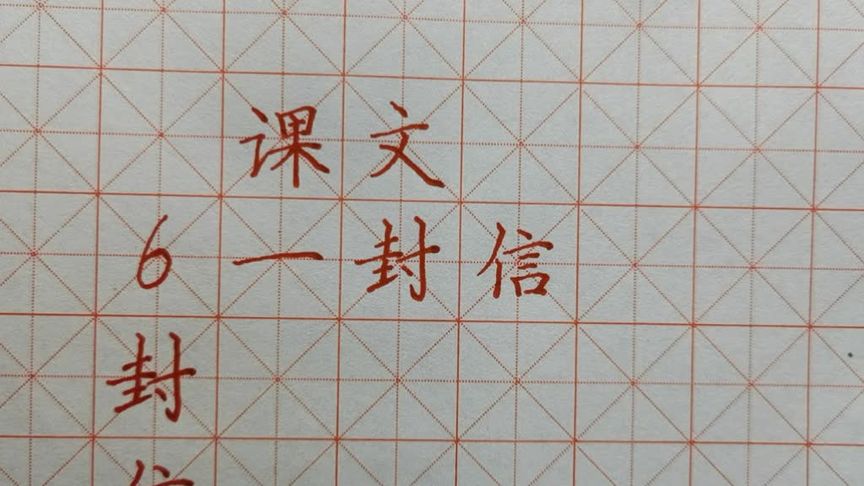 课文
6一封信
封
信